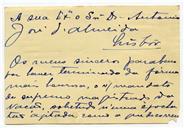 A sua Exª o Snr Dr. Antonio
José d'Almeida
Lisbôa
Os meus sinceros parabens
por haver terminado da forma
mais honrosa, o seu mandato
de supremo magistrado da
Nação, sobretudo n'uma épocha
tão agitada como a que